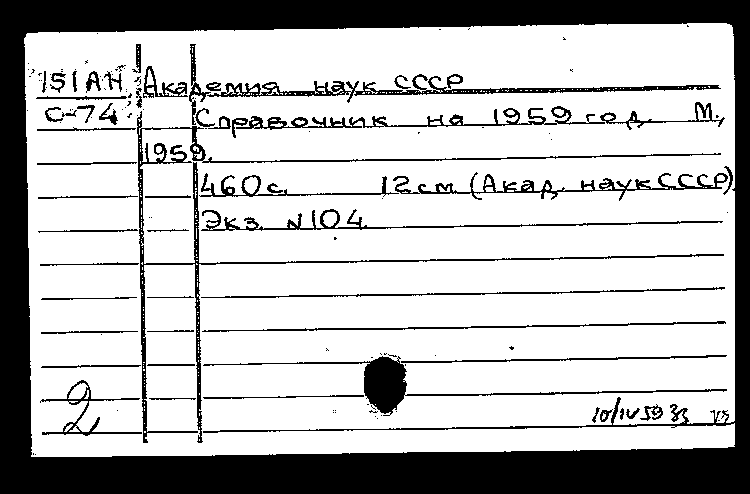 151АН Академия наук СССР
С-74 Справочник на 1959 год. М.,
1959.
460с. 12см (Акад. наук СССР)
Экз. N104.
2
10/IV 59